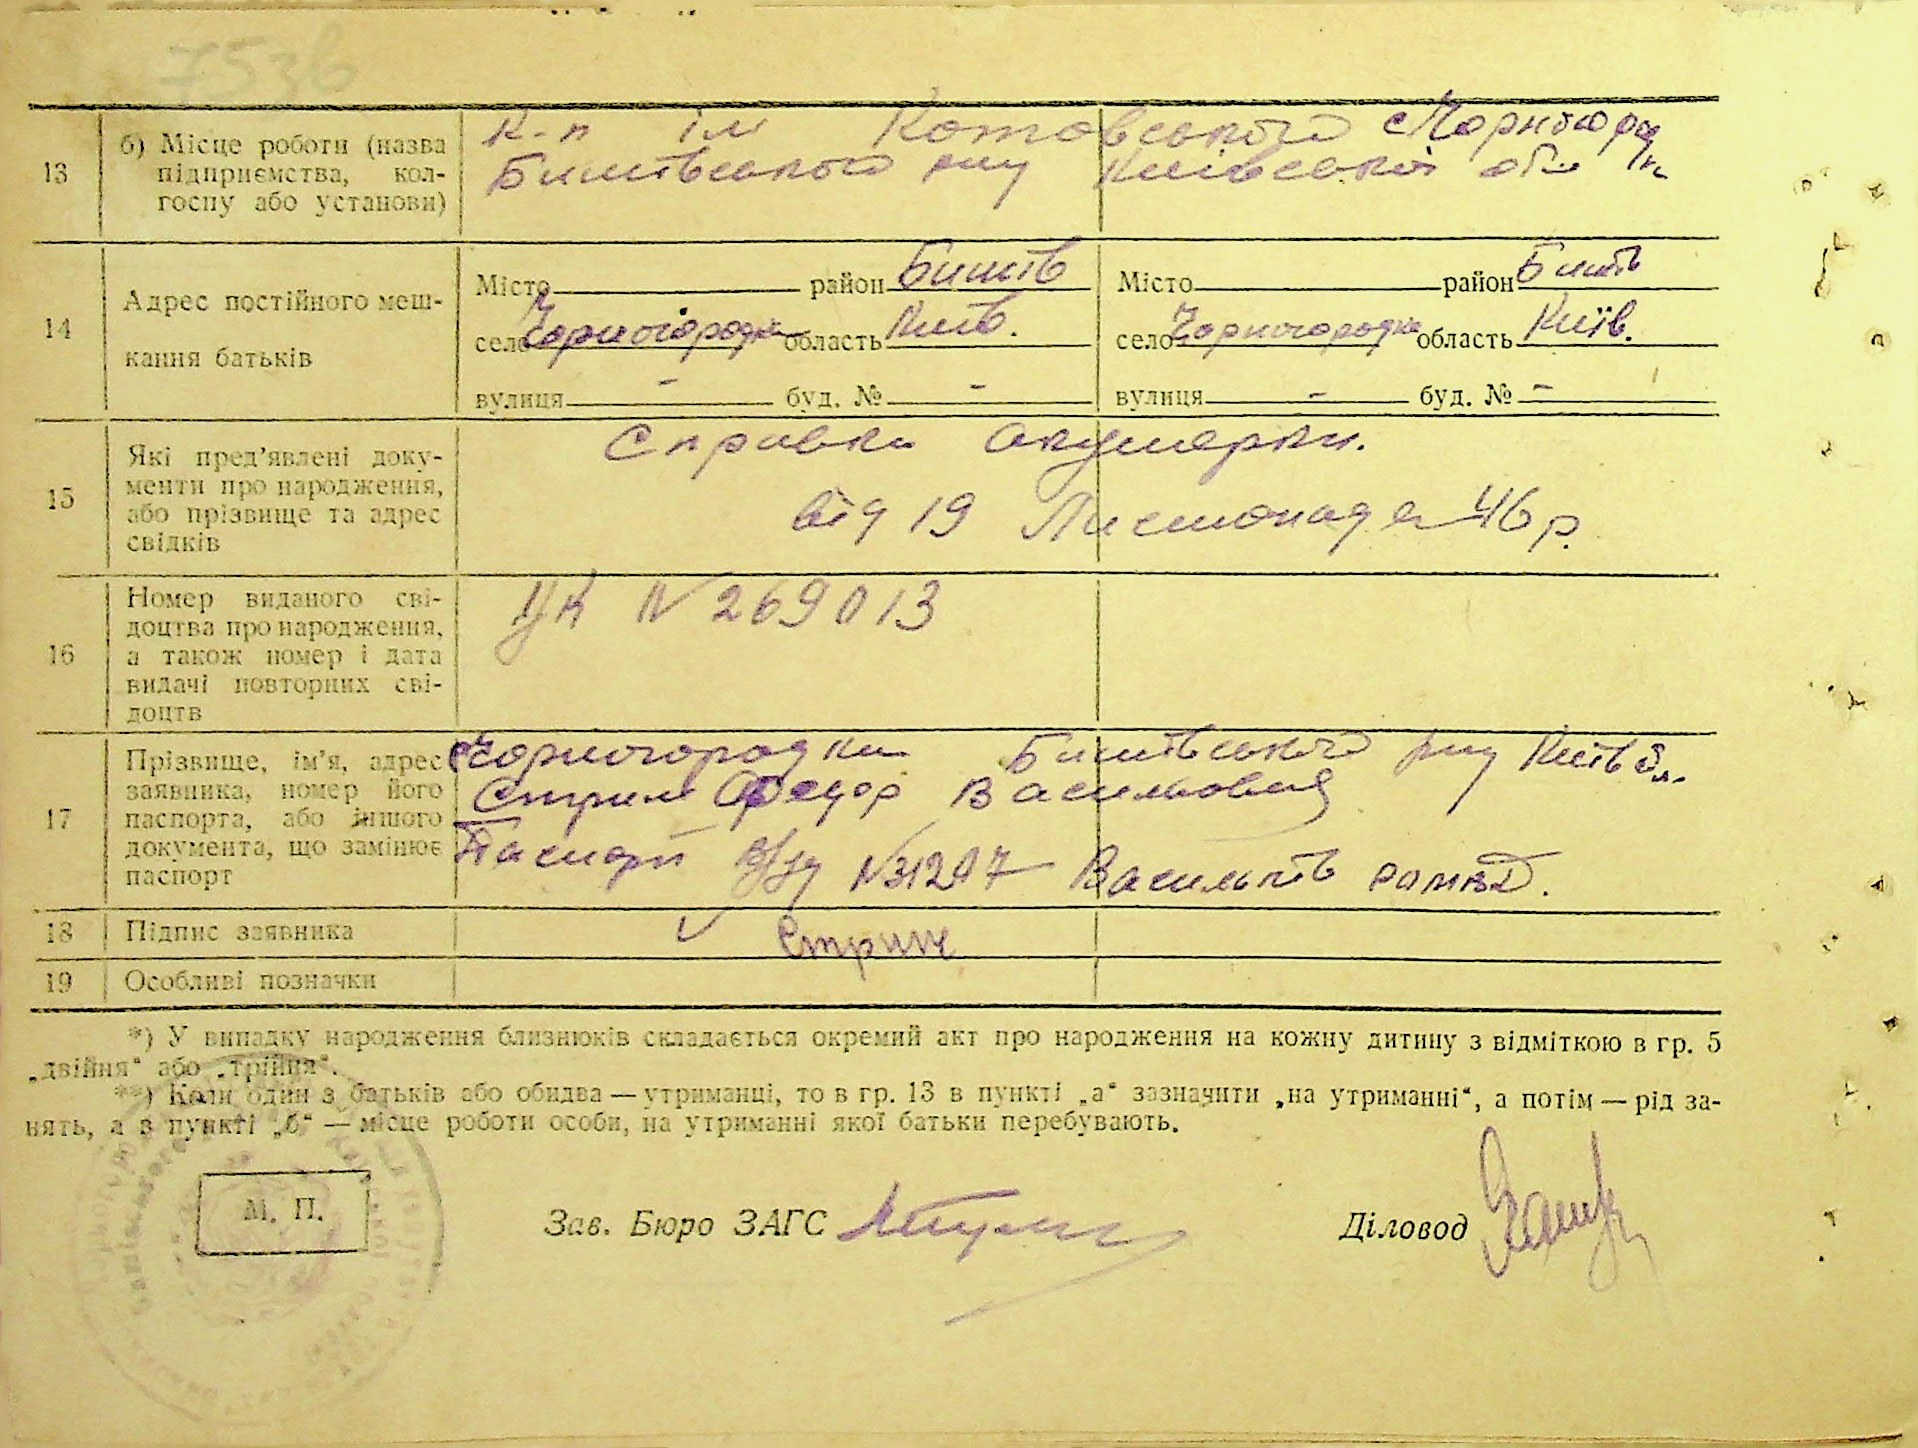 753в
13
б) Місце роботи (назва
підприємства, кол-
госпу або установи)
К-п ім Котовського с Чорногород
Бишівського р-ну Київської обл
14
Адрес постійного меш-
кання батьків
Місто район Бишів
село Чорногородка область Київ.
вулиця - буд. № -
Місто район Бишів
село Чорногородка область Київ.
вулиця - буд. № -
15
Які пред’явлені доку-
менти про народження,
або прізвище та адрес
свідків
Справка акушерки.
від 19 Листопада 46 р.
16
Номер виданого сві-
доцтва про народження,
а також номер і дата
видачі повторних сві-
доцтв
УК N 269013
17
Прізвище, ім’я, адрес
заявника, номер його
паспорта, або іншого
документа, що замінює
паспорт
с Чорногородки Бишівського р-ну Київ
Федор Васильович
Паспорт N 31207 Васильків
18
Підпис заявника
19
Особливі позначки
*) У випадку народження близнюків складається окремий акт про народження на кожну дитину з відміткою в гр. 5
„двійня“ або „трійня“.
**) Коли один з батьків або обидва — утриманці, то в гр. 13 в пункті „а“ зазначити „на утриманні“, а потім — рід за-
нять, а в пункті „б“ — місце роботи особи, на утриманні якої батьки перебувають.
М. П.
Зав. Бюро ЗАГС
Діловод